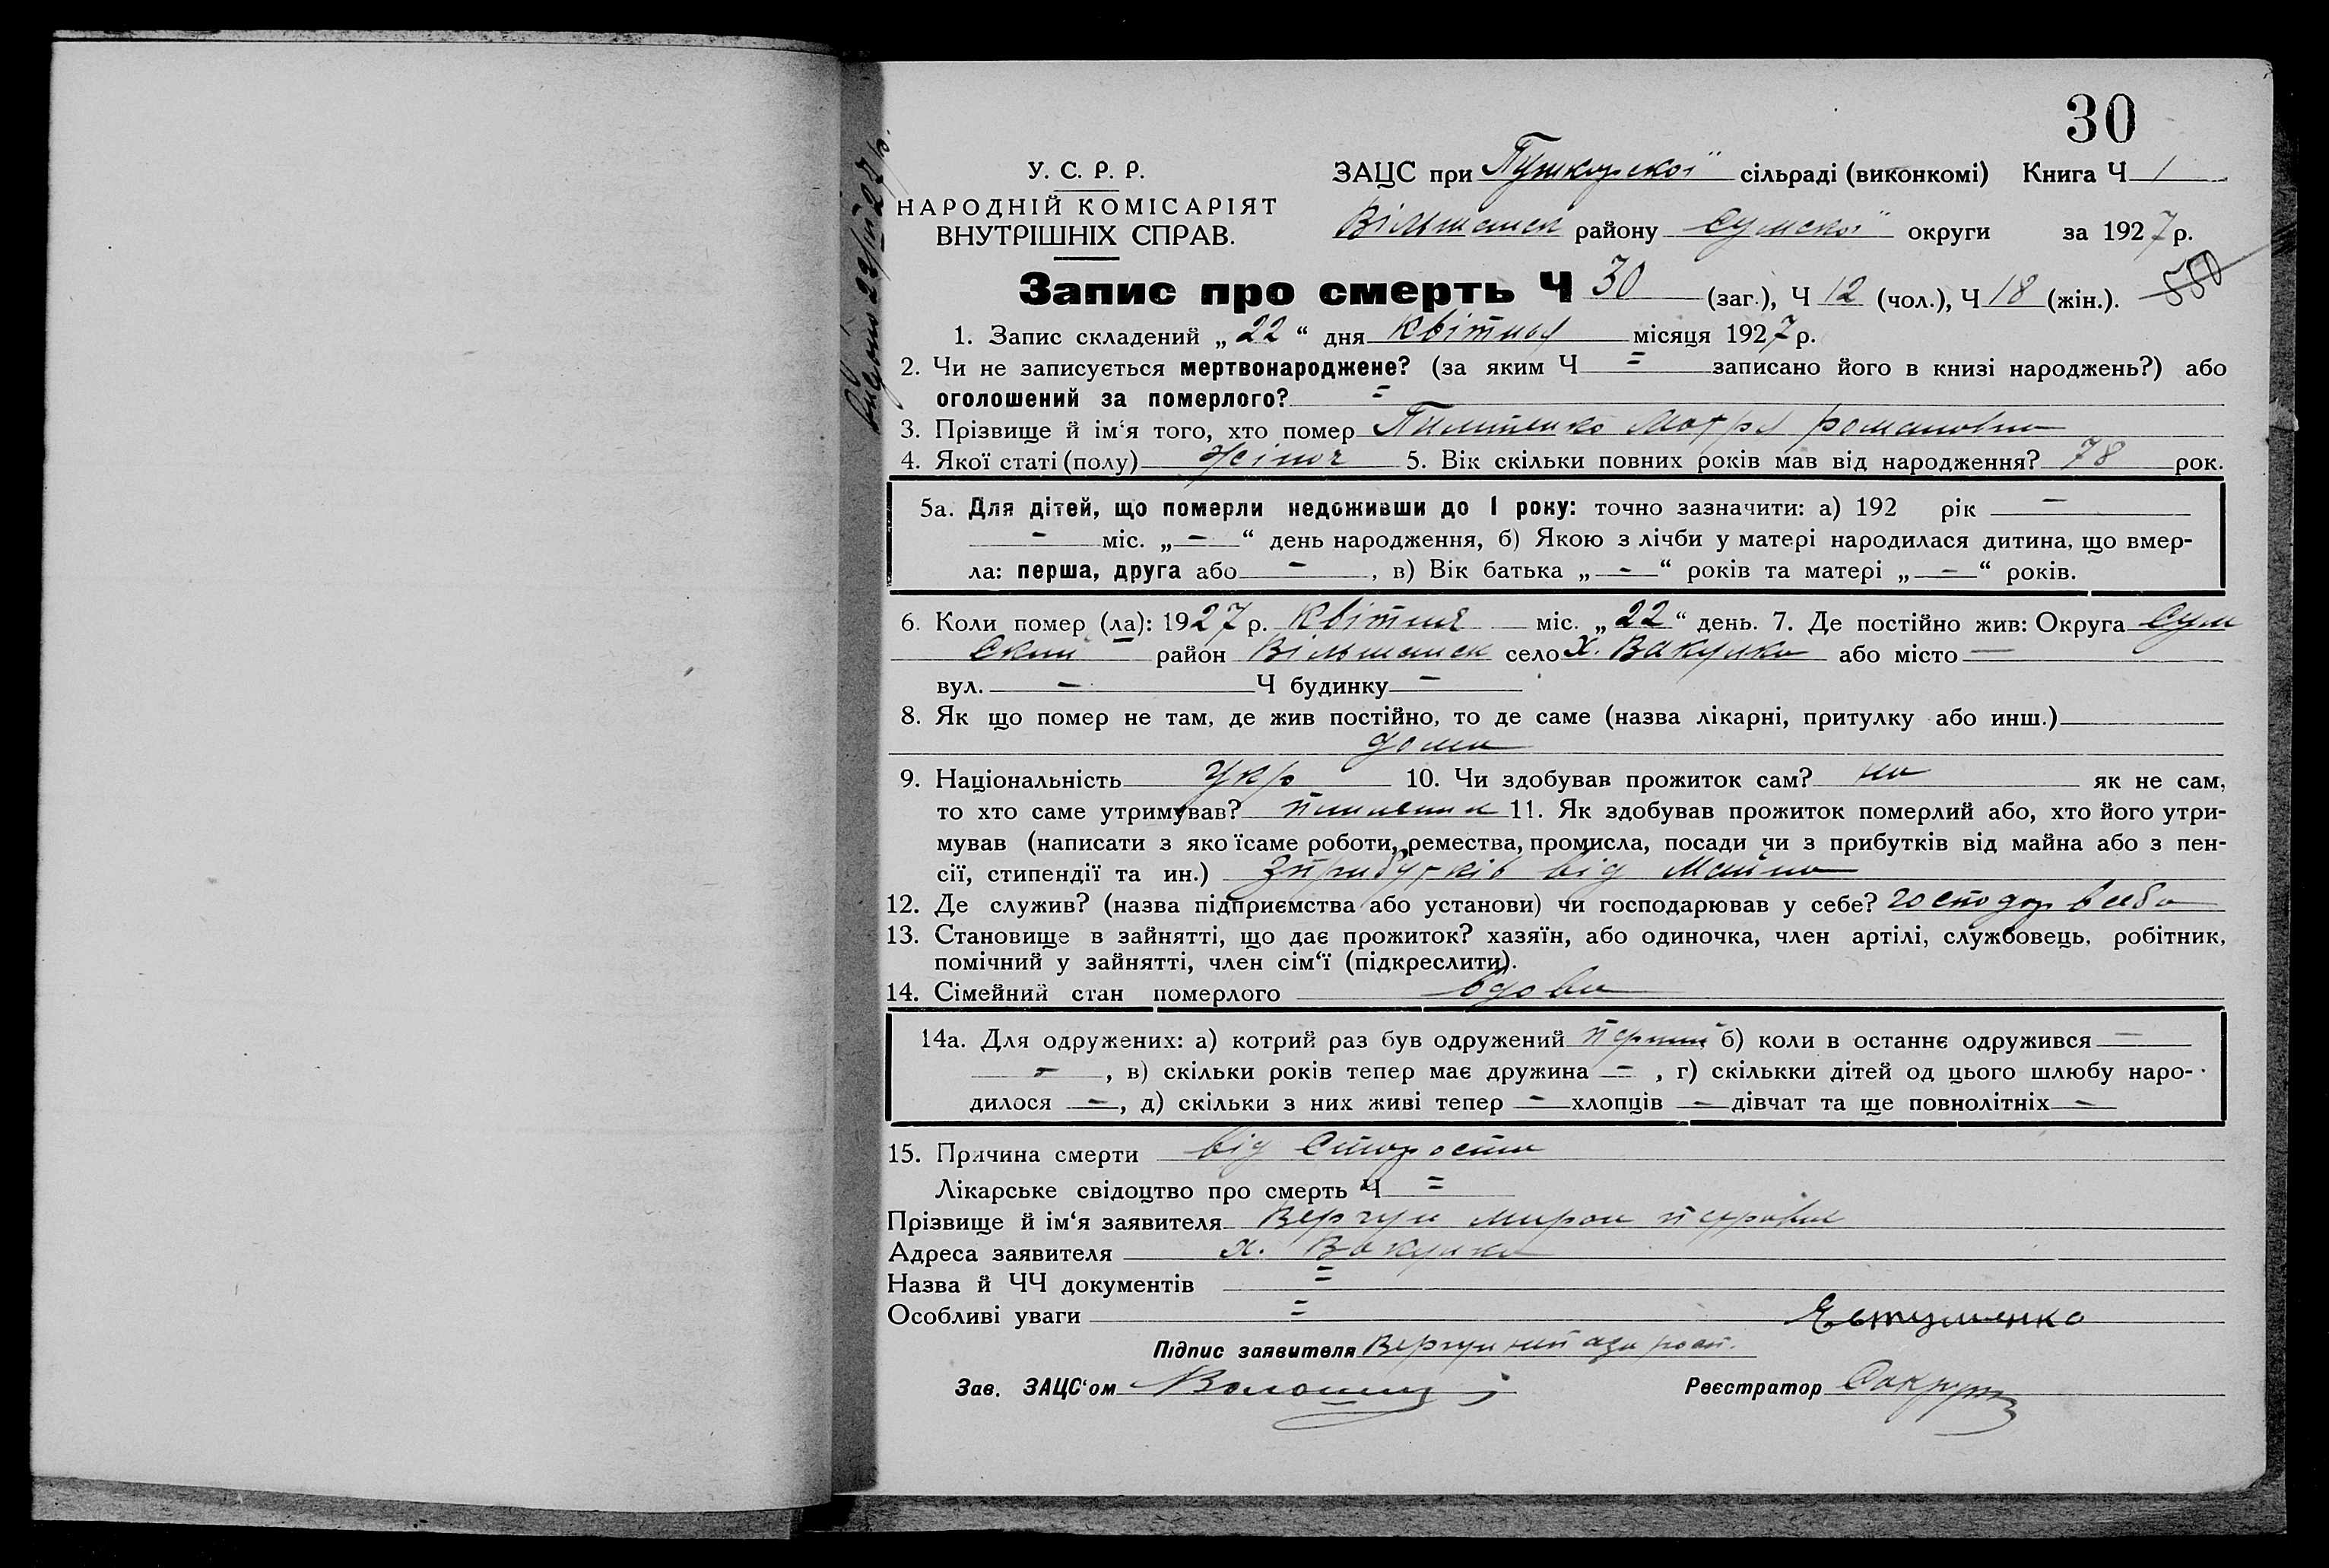 30
У. С. Р. Р.
НАРОДНІЙ КОМІСАРІЯТ
ВНУТРІШНІХ СПРАВ.
ЗАЦС при Пушкарскої сільраді (виконкомі) Книга Ч 1
Вільшанск району Сумскої округи за 1927 р.
Запис про смерть Ч 30 (заг.), Ч 12 (чол.), Ч 18 (жін.). 550
1. Запис складений „ 22 “ дня квітня місяця 1927 р.
2. Чи не записується мертвонароджене? (за яким Ч = записано його в книзі народжень?) або
оголошений за померлого? =
3. Прізвище й ім‘я того, хто помер Пилипенко Мотря романовна
4. Якої статі (полу) жіноч 5. Вік скільки повних років мав від народження? 78 рок.
5а. Для дітей, що померли недоживши до 1 року: точно зазначити: а) 192 рік —
— міс. „ — “ день народження, б) Якою з лічби у матері народилася дитина, що вмер-
ла: перша, друга або — , в) Вік батька „ — “ років та матері „ — “ років.
6. Коли помер (ла): 1927 р. квітня міс. „ 22 “ день. 7. Де постійно жив: Округа Сум
ский район Вільшанск село х. Вакулки або місто —
вул. — Ч будинку —
8. Як що помер не там, де жив постійно, то де саме (назва лікарні, притулку або инш.)
дома
9. Національність Укр 10. Чи здобував прожиток сам? ни як не сам,
то хто саме утримував? 11. Як здобував прожиток померлий або, хто його утри-
мував (написати з яко їсаме роботи, ремества, промисла, посади чи з прибутків від майна або з пен-
сії, стипендії та ин.) зприбутків від майна
12. Де служив? (назва підприємства або установи) чи господарював у себе? господар всебе
13. Становище в зайнятті, що дає прожиток? хазяїн, або одиночка, член артілі, службовець, робітник,
помічний у зайнятті, член сім‘ї (підкреслити).
14. Сімейний стан померлого вдова
14а. Для одружених: а) котрий раз був одружений перший б) коли в останнє одружився —
— , в) скільки років тепер має дружина — , г) скількки дітей од цього шлюбу наро-
дилося — , д) скільки з них живі тепер — хлопців — дівчат та ще повнолітніх —
15. Причина смерти від старости
Лікарське свідоцтво про смерть Ч =
Прізвище й ім‘я заявителя Вергун мирон петрович
Адреса заявителя х. Вакулки
Назва й ЧЧ документів =
Особливі уваги = Євтушенко
Підпис заявителя Вергун
Зав. ЗАЦС‘ом Реєстратор